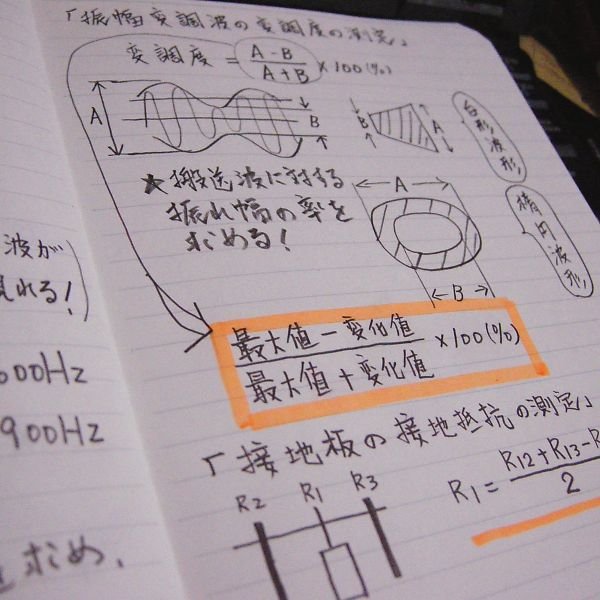 「振幅変調波の変調度の測定」
変調度 = A-B / A+B ×100(%)
A
B
B
A
台形波形
★搬送波に対する
振れ幅の率を
求める!
A
B
楕円波形
最大値-変化値 / 最大値+変化値 ×100(%)
「接地板の接地抵抗の測定」
R2
R1
R3
R1= R12+R13-R / 2
波が
れる!
000Hz
900Hz
求め、